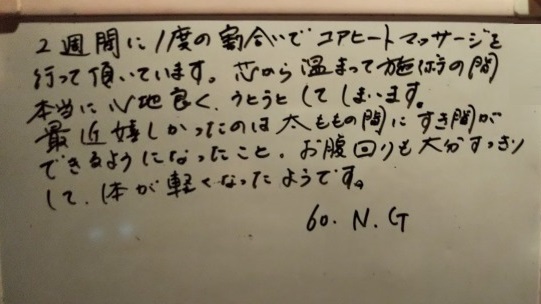 2週間に1度の割合いでコアヒートマッサージを
行って頂いています。芯から温まって施術の間
本当に心地良く、うとうとしてしまいます。
最近嬉しかったのは太ももの間にすき間が
できるようになったこと。お腹回りも大分すっきり
して、体が軽くなったようです。
60. N.G